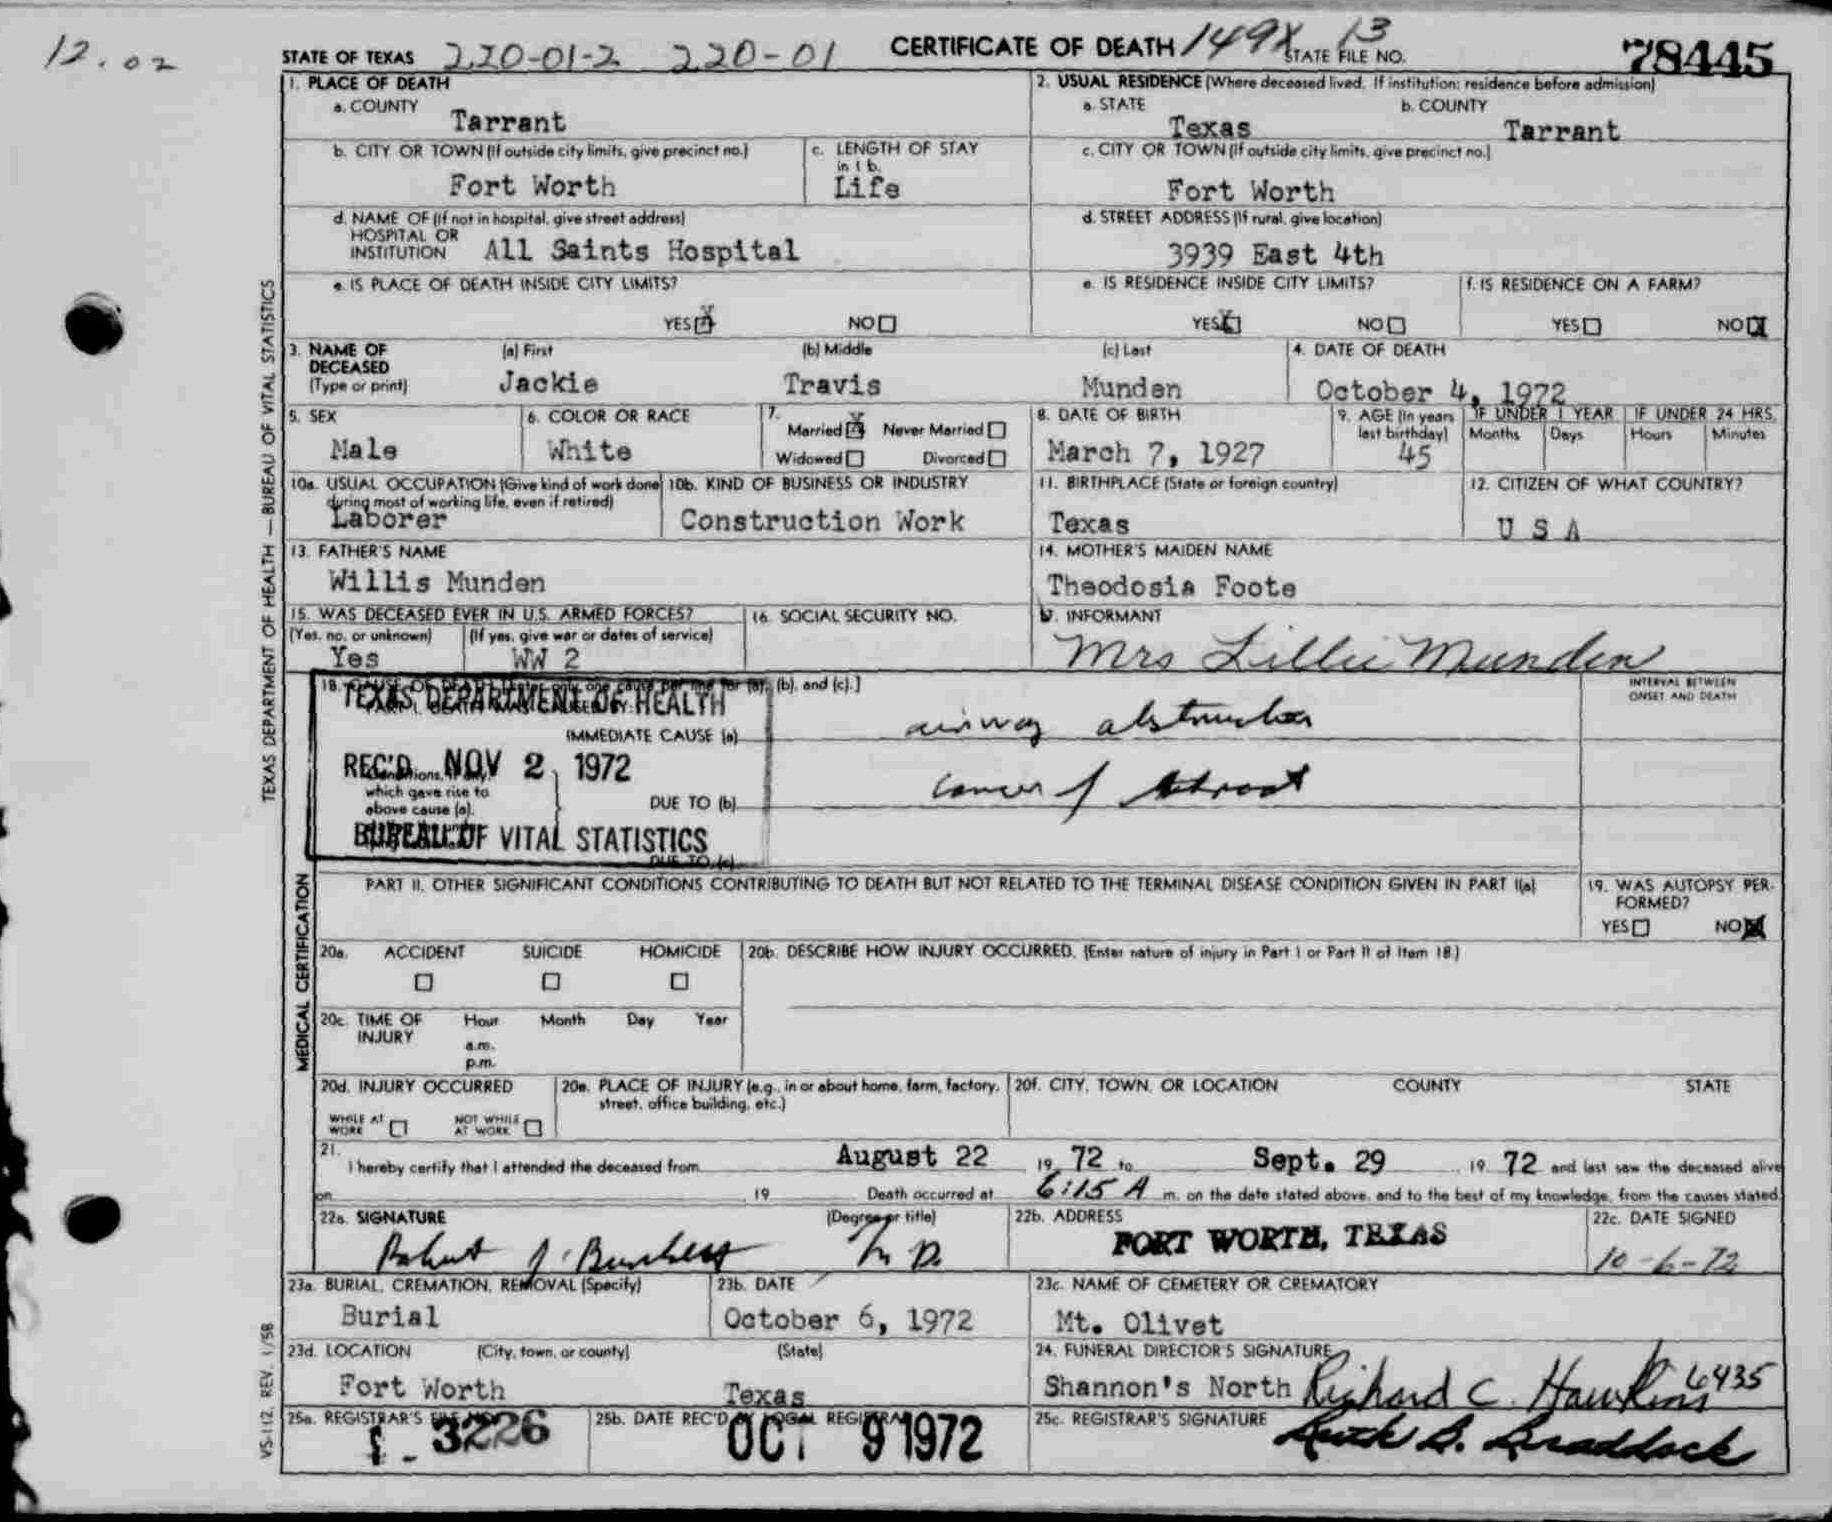 12.02
STATE OF TEXAS 220-01-2 220-01 CERTIFICATE OF DEATH 149X 13 STATE FILE NO. 78445
1. PLACE OF DEATH
a. COUNTY Tarrant
2. USUAL RESIDENCE (Where deceased lived. If institution: residence before admission)
a. STATE Texas b. COUNTY Tarrant
b. CITY OR TOWN (If outside city limits, give precinct no.) Fort Worth
c. LENGTH OF STAY in 1 b. Life
c. CITY OR TOWN (If outside city limits, give precinct no.) Fort Worth
d. NAME OF (If not in hospital, give street address) HOSPITAL OR INSTITUTION All Saints Hospital
d. STREET ADDRESS (If rural, give location) 3939 East 4th
e. IS PLACE OF DEATH INSIDE CITY LIMITS?
YES X NO
e. IS RESIDENCE INSIDE CITY LIMITS?
YES X NO
f. IS RESIDENCE ON A FARM?
YES NO X
3. NAME OF DECEASED (Type or print)
(a) First Jackie (b) Middle Travis (c) Last Munden
4. DATE OF DEATH October 4, 1972
5. SEX Male
6. COLOR OR RACE White
7. Married X Never Married
Widowed Divorced
8. DATE OF BIRTH March 7, 1927
9. AGE (In years last birthday) 45
IF UNDER 1 YEAR Months Days
IF UNDER 24 HRS. Hours Minutes
10a. USUAL OCCUPATION (Give kind of work done during most of working life, even if retired) Laborer
10b. KIND OF BUSINESS OR INDUSTRY Construction Work
11. BIRTHPLACE (State or foreign country) Texas
12. CITIZEN OF WHAT COUNTRY? U S A
13. FATHER'S NAME Willis Munden
14. MOTHER'S MAIDEN NAME Theodosia Foote
15. WAS DECEASED EVER IN U.S. ARMED FORCES?
(Yes, no, or unknown) Yes (If yes, give war or dates of service) WW 2
16. SOCIAL SECURITY NO.
17. INFORMANT Mrs Lillie Munden
18. CAUSE OF DEATH [Enter only one cause per line for (a), (b), and (c).]
INTERVAL BETWEEN ONSET AND DEATH
PART I. DEATH WAS CAUSED BY:
TEXAS DEPARTMENT OF HEALTH
IMMEDIATE CAUSE (a) airway obstruction
REC'D NOV 2 1972
Conditions, if any, which gave rise to above cause (a),
DUE TO (b) cancer of throat
BUREAU OF VITAL STATISTICS
DUE TO (c)
PART II. OTHER SIGNIFICANT CONDITIONS CONTRIBUTING TO DEATH BUT NOT RELATED TO THE TERMINAL DISEASE CONDITION GIVEN IN PART I(a)
19. WAS AUTOPSY PERFORMED?
YES NO X
20a. ACCIDENT SUICIDE HOMICIDE
20b. DESCRIBE HOW INJURY OCCURRED. (Enter nature of injury in Part I or Part II of Item 18.)
20c. TIME OF INJURY Hour Month Day Year
a.m.
p.m.
20d. INJURY OCCURRED
WHILE AT WORK NOT WHILE AT WORK
20e. PLACE OF INJURY (e.g., in or about home, farm, factory, street, office building, etc.)
20f. CITY, TOWN, OR LOCATION COUNTY STATE
21. I hereby certify that I attended the deceased from August 22 19 72 to Sept. 29 19 72 and last saw the deceased alive
on 19 Death occurred at 6:15 A m. on the date stated above, and to the best of my knowledge, from the causes stated.
22a. SIGNATURE (Degree or title) Robert J. M D.
22b. ADDRESS FORT WORTH, TEXAS
22c. DATE SIGNED 10-6-72
23a. BURIAL, CREMATION, REMOVAL (Specify) Burial
23b. DATE October 6, 1972
23c. NAME OF CEMETERY OR CREMATORY Mt. Olivet
23d. LOCATION (City, town, or county) (State)
Fort Worth Texas
24. FUNERAL DIRECTOR'S SIGNATURE
Shannon's North Richard C. Hawkins 6435
25a. REGISTRAR'S FILE NO. 3226
25b. DATE REC'D BY LOCAL REGISTRAR OCT 9 1972
25c. REGISTRAR'S SIGNATURE Ruth B. Braddock
TEXAS DEPARTMENT OF HEALTH — BUREAU OF VITAL STATISTICS
MEDICAL CERTIFICATION
VS-112, REV. 1/58